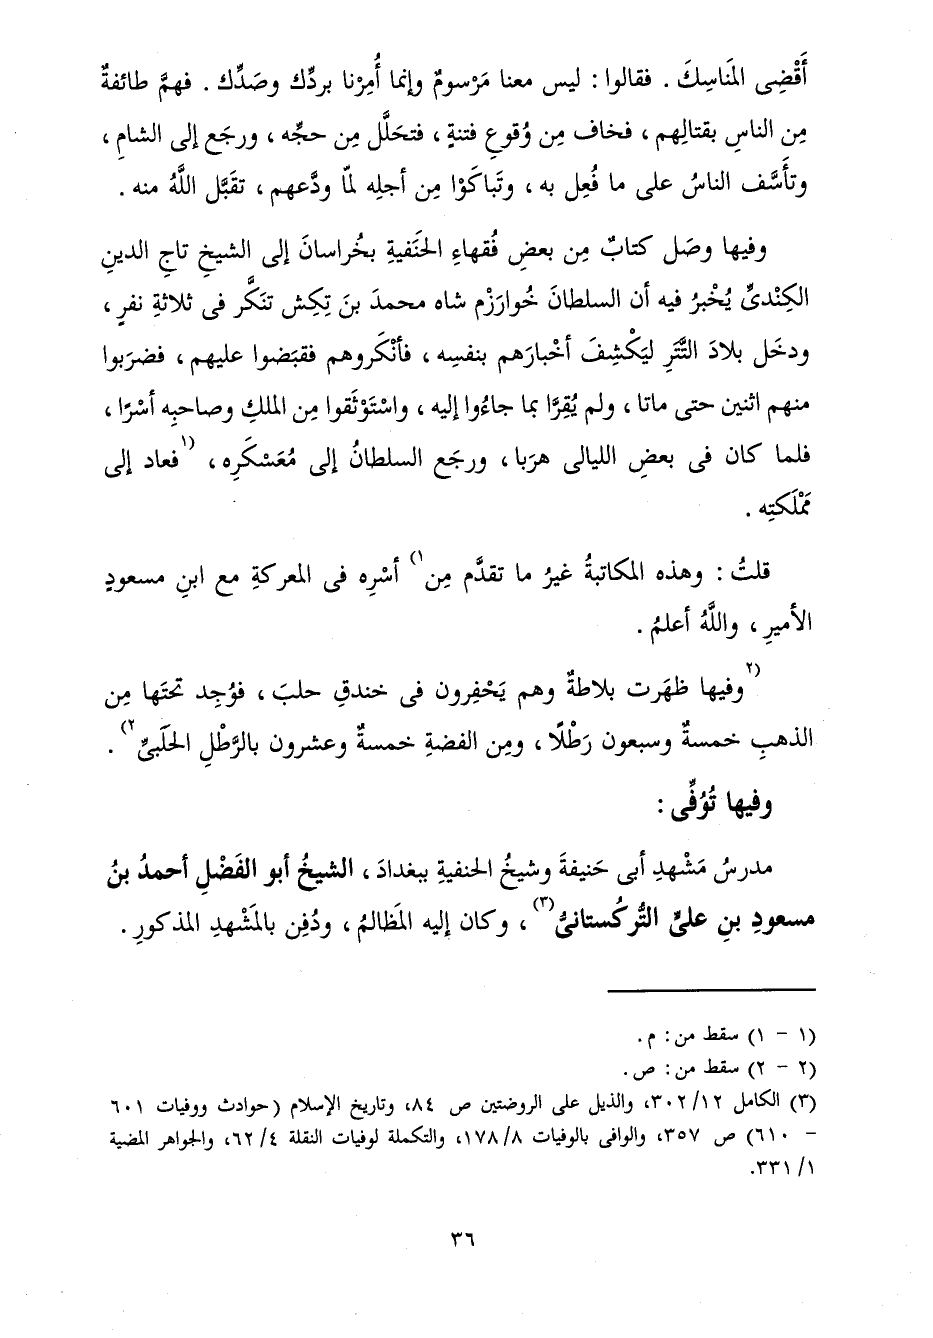 أَقْضِى المَنَاسِكَ . فقالوا : ليس معنا مَرْسومٌ وإنما أُمِرْنا بردِّك وصَدِّك . فهمَّ طائفةٌ
مِن الناسِ بقتالِهم ، فخاف مِن وُقوعِ فتنةٍ ، فتحَلَّل مِن حجِّه ، ورجَع إلى الشامِ ،
وتأَسَّف الناسُ على ما فُعِل به ، وتَباكَوْا مِن أجلِه لمّا ودَّعهم ، تقَبَّل اللَّهُ منه .
وفيها وصَل كتابٌ مِن بعضِ فُقهاءِ الحَنَفيةِ بخُراسانَ إلى الشيخِ تاجِ الدينِ
الكِنْدىِّ يُخْبِرُ فيه أن السلطانَ خُوارَزْم شاه محمدَ بنَ تِكِش تنَكَّر فى ثلاثةِ نفرٍ ،
ودخَل بلادَ التَّتَرِ ليَكْشِفَ أخْبارَهم بنفسِه ، فأنْكَروهم فقبَضوا عليهم ، فضرَبوا
منهم اثنين حتى ماتا ، ولم يُقِرَّا بما جاءُوا إليه ، واسْتَوْثَقوا مِن الملكِ وصاحبِه أسْرًا ،
فلما كان فى بعضِ الليالى هرَبا ، ورجَع السلطانُ إلى مُعَسْكَرِه ، (١فعاد إلى
مَمْلَكتِه .
قلتُ : وهذه المكاتبةُ غيرُ ما تقدَّم مِن١) أسْرِه فى المعركةِ مع ابنِ مسعودٍ
الأميرِ ، واللَّهُ أعلمُ .
(٢وفيها ظهَرت بلاطةٌ وهم يَحْفِرون فى خندقِ حلبَ ، فوُجِد تحتَها مِن
الذهبِ خمسةٌ وسبعون رَطْلًا ، ومِن الفضةِ خمسةٌ وعشرون بالرَّطْلِ الحَلَبىِّ٢) .
وفيها تُوُفِّى :
مدرسُ مَشْهدِ أبى حَنيفةَ وشيخُ الحنفيةِ ببغدادَ ، الشيخُ أبو الفَضْلِ أحمدُ بنُ
مسعودِ بنِ علىٍّ التُّركُستانىُّ(٣) ، وكان إليه المَظالمُ ، ودُفِن بالمَشْهدِ المذكورِ .
(١ - ١) سقط من : م .
(٢ - ٢) سقط من : ص .
(٣) الكامل ١٢/ ٣٠٢، والذيل على الروضتين ص ٨٤، وتاريخ الإسلام (حوادث ووفيات ٦٠١
- ٦١٠) ص ٣٥٧، والوافى بالوفيات ٨/ ١٧٨، والتكملة لوفيات النقلة ٤/ ٦٢، والجواهر المضية
١/ ٣٣١.
٣٦